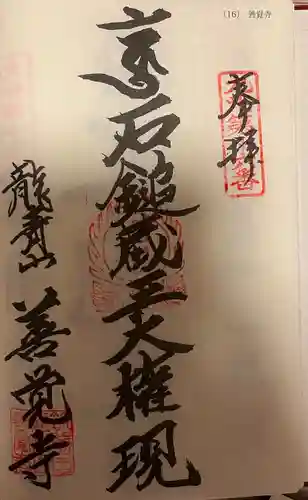 (16) 善覚寺
奉拝
高石鎚蔵王大権現
龍山 善覚寺